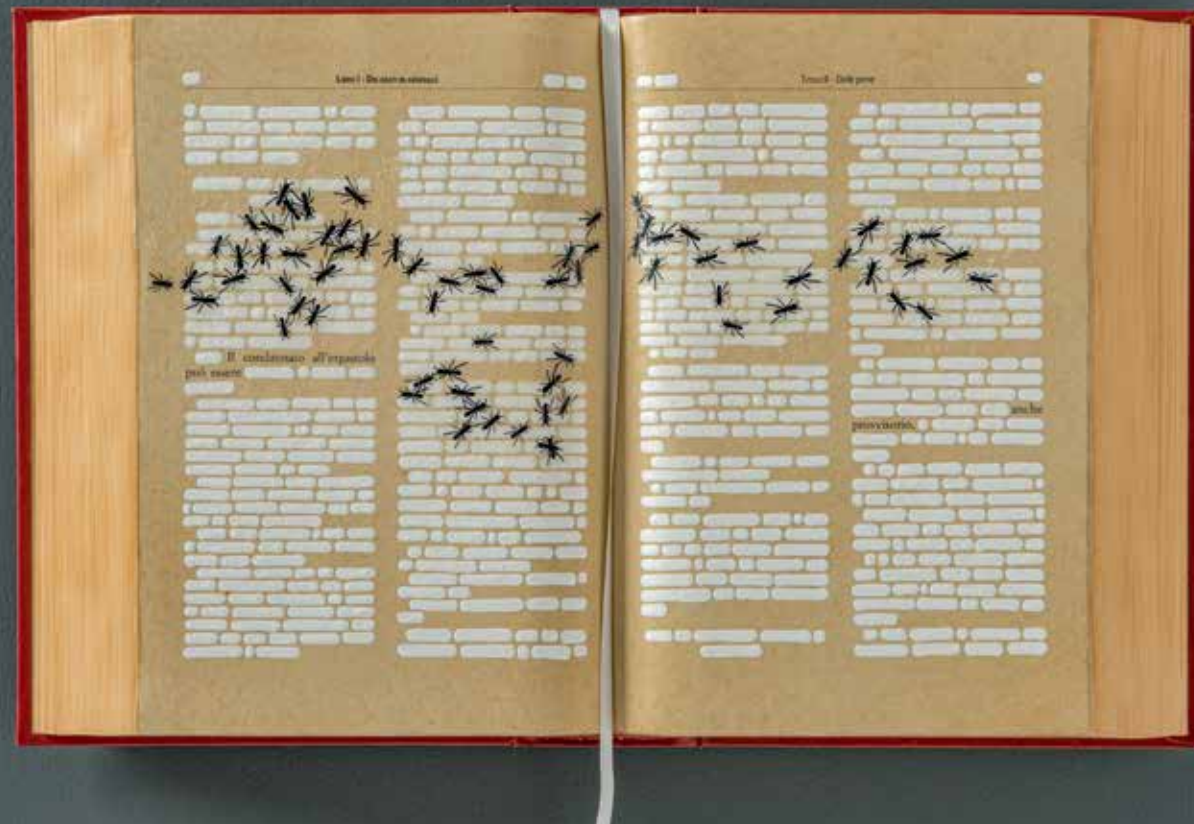 Libro I - Dei reati in generale
Titolo II - Delle pene
Il condannato all'ergastolo
può essere
anche
provvisorio,